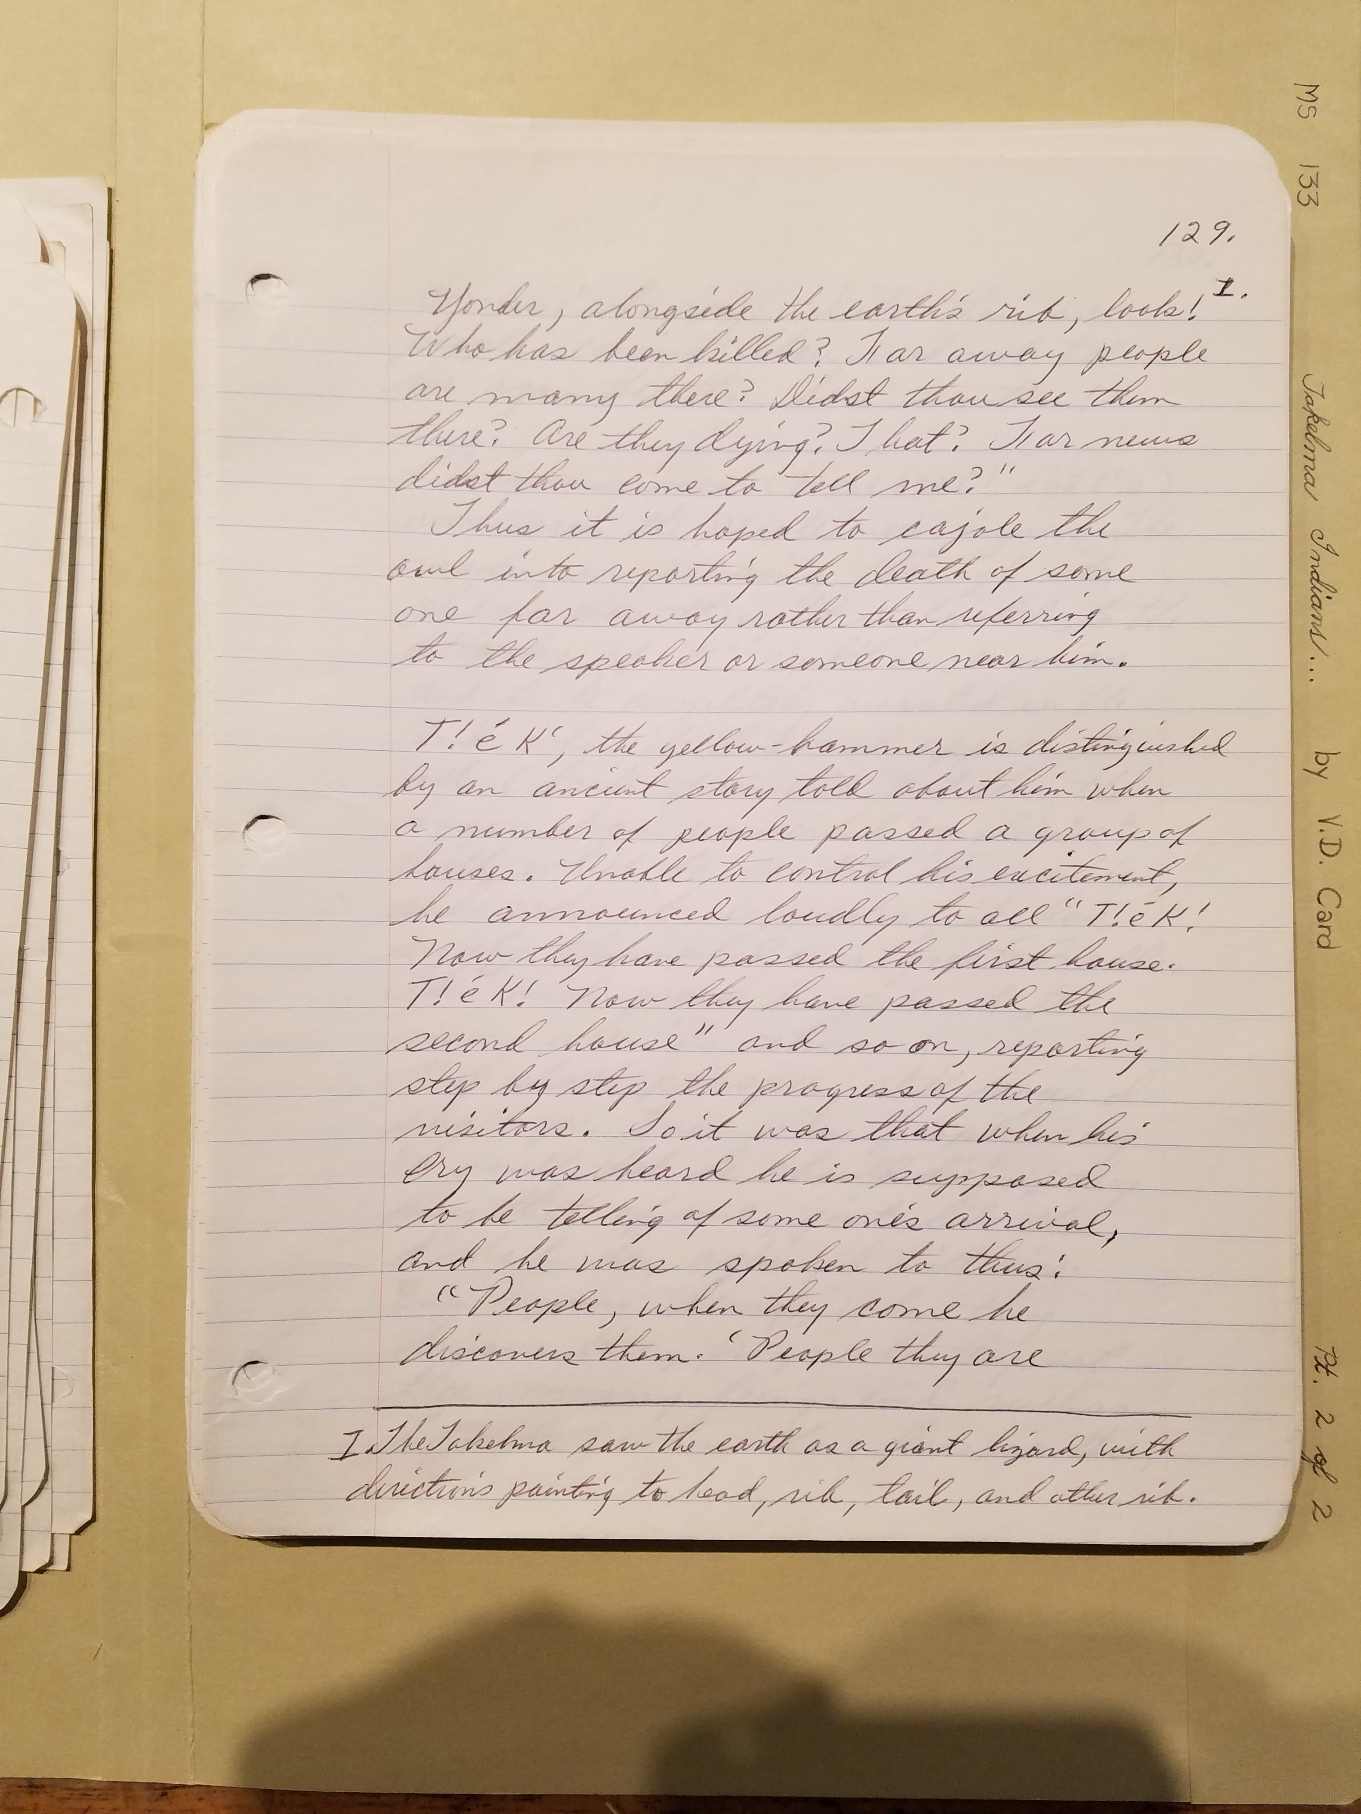 129.
Yonder, alongside the earth's rib, look! I.
Who has been killed? Far away people
are many there? Didst thou see them
there? Are they dying? That? Far news
didst thou come to tell me?"
Thus it is hoped to cajole the
owl into reporting the death of some
one far away rather than referring
to the speaker or someone near him.
T!ék‘, the yellow-hammer is distinguished
by an ancient story told about him when
a number of people passed a group of
houses. Unable to control his excitement,
he announced loudly to all "T!éK!
Now they have passed the first house.
T!éK! Now they have passed the
second house" and so on, reporting
step by step the progress of the
visitors. So it was that when his
cry was heard he is supposed
to be telling of some one's arrival,
and he was spoken to thus:
"People, when they come he
discovers them. 'People they are
I. The Takelma saw the earth as a giant lizard, with
directions pointing to head, rib, tail, and other rib.
MS 133 Takelma Indians... by V.D. Card Pt. 2 of 2